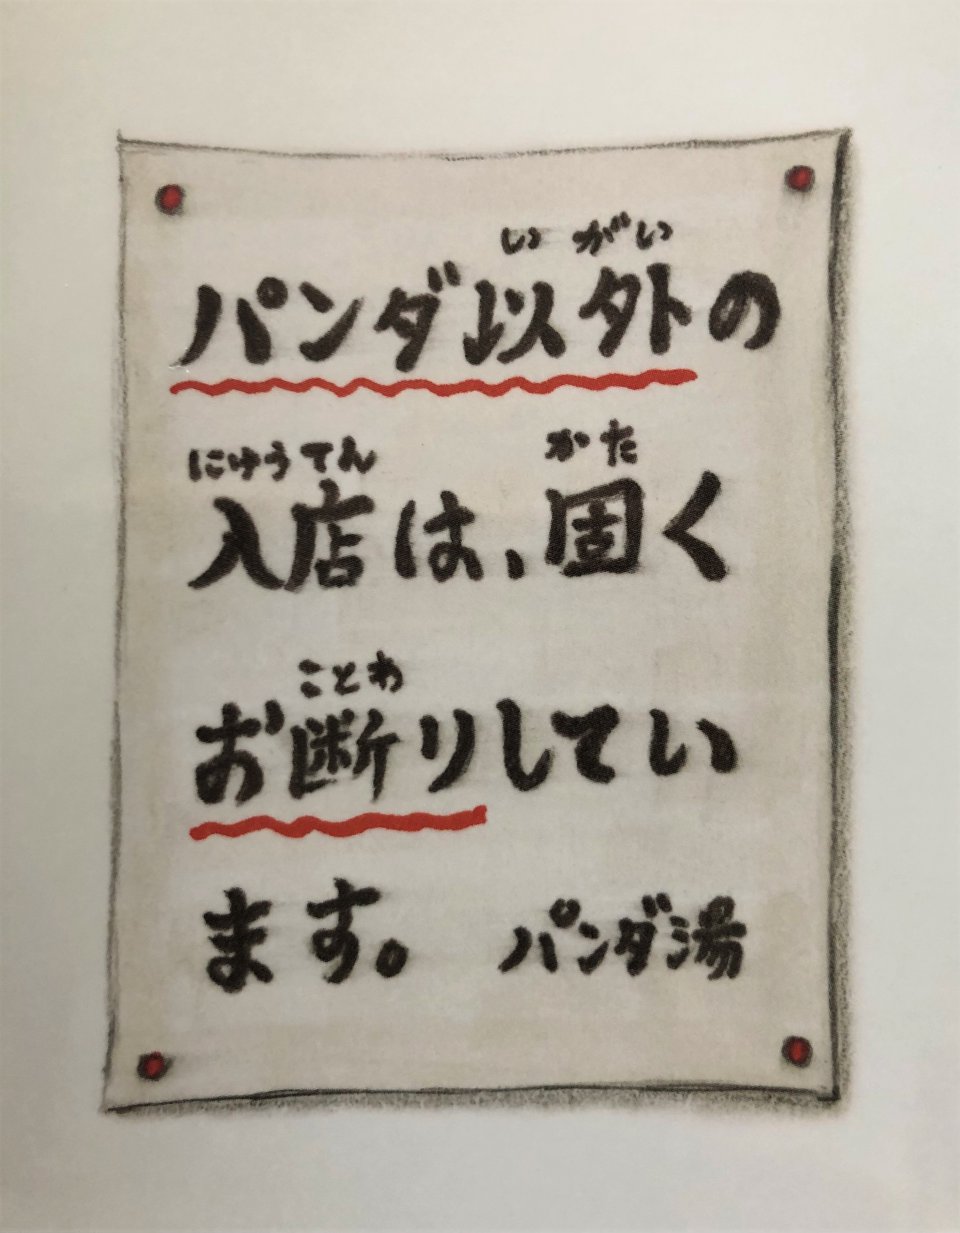 いがい
パンダ以外の
にゅうてん かた
入店は、固く
ことわ
お断りしてい
ます。 パンダ湯